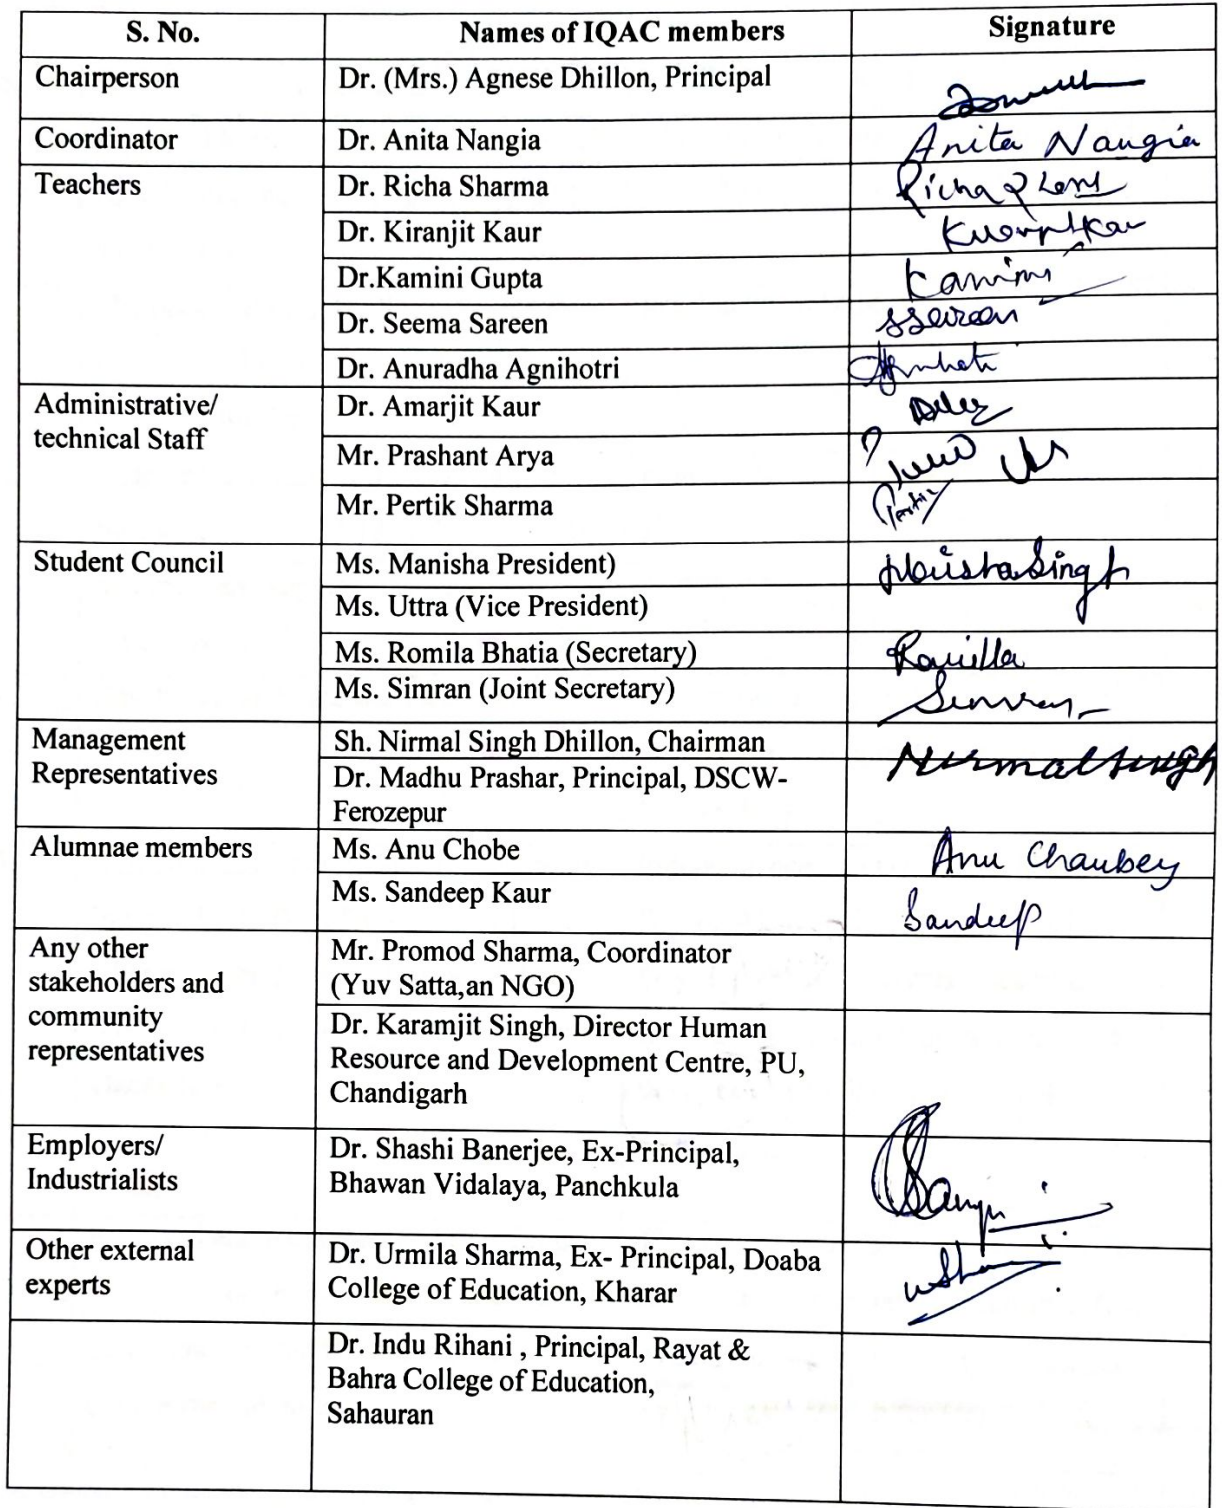 S. No. Names of IQAC members Signature
Chairperson Dr. (Mrs.) Agnese Dhillon, Principal
Coordinator Dr. Anita Nangia Anita Nangia
Teachers Dr. Richa Sharma Richa
Dr. Kiranjit Kaur
Dr.Kamini Gupta Kamini
Dr. Seema Sareen SSareen
Dr. Anuradha Agnihotri
Administrative/
technical Staff
Dr. Amarjit Kaur
Mr. Prashant Arya
Mr. Pertik Sharma Pertik
Student Council Ms. Manisha President) Singh
Ms. Uttra (Vice President)
Ms. Romila Bhatia (Secretary) Romilla
Ms. Simran (Joint Secretary) Simran
Management
Representatives
Sh. Nirmal Singh Dhillon, Chairman Nirmal Singh
Dr. Madhu Prashar, Principal, DSCW-
Ferozepur
Alumnae members Ms. Anu Chobe Anu Chaubey
Ms. Sandeep Kaur Sandeep
Any other
stakeholders and
community
representatives
Mr. Promod Sharma, Coordinator
(Yuv Satta,an NGO)
Dr. Karamjit Singh, Director Human
Resource and Development Centre, PU,
Chandigarh
Employers/
Industrialists
Dr. Shashi Banerjee, Ex-Principal,
Bhawan Vidalaya, Panchkula
Other external
experts
Dr. Urmila Sharma, Ex- Principal, Doaba
College of Education, Kharar
Dr. Indu Rihani , Principal, Rayat &
Bahra College of Education,
Sahauran